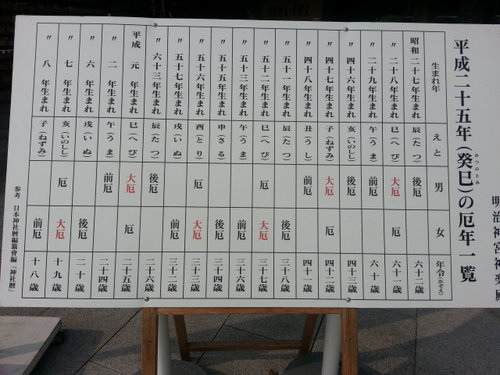 明治神宮神楽殿
平成二十五年(癸巳)の厄年一覧
みつのとみ
生まれ年 えと 男 女 年令(かぞえ)
昭和 二十七年生まれ 辰(たつ) 後厄 六十二歳
〃 二十八年生まれ 巳(へび) 大厄 厄 六十一歳
〃 二十九年生まれ 午(うま) 前厄 六十歳
〃 四十六年生まれ 亥(いのしし) 後厄 四十三歳
〃 四十七年生まれ 子(ねずみ) 大厄 厄 四十二歳
〃 四十八年生まれ 丑(うし) 前厄 四十一歳
〃 五十一年生まれ 辰(たつ) 後厄 三十八歳
〃 五十二年生まれ 巳(へび) 厄 大厄 三十七歳
〃 五十三年生まれ 午(うま) 前厄 三十六歳
〃 五十五年生まれ 申(さる) 後厄 三十四歳
〃 五十六年生まれ 酉(とり) 厄 大厄 三十三歳
〃 五十七年生まれ 戌(いぬ) 前厄 三十二歳
〃 六十三年生まれ 辰(たつ) 後厄 二十六歳
平成 元 年生まれ 巳(へび) 大厄 厄 二十五歳
〃 二 年生まれ 午(うま) 前厄 二十四歳
〃 六 年生まれ 戌(いぬ) 後厄 二十歳
〃 七 年生まれ 亥(いのしし) 厄 大厄 十九歳
〃 八 年生まれ 子(ねずみ) 前厄 十八歳
参考 日本神社暦編集會編「神社暦」